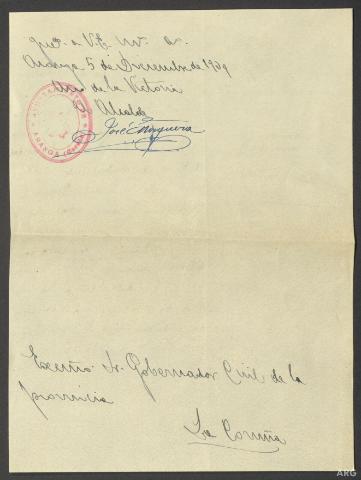 gue. a V.E. m. a.
Aranga, 5 de Diciembre de 1939
Año de la Victoria
El Alcalde
José Noguerra
AYUNTAMIENTO
ARANGA
Excmo. Sr. Gobernador Civil de la
provincia
La Coruña
ARG